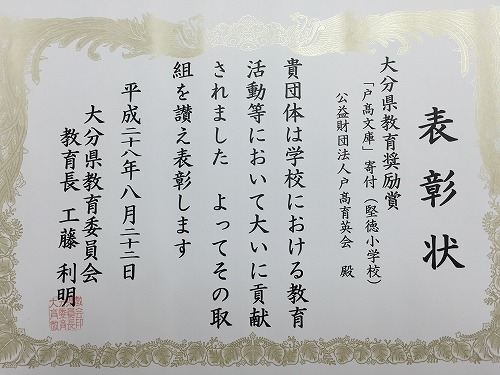 表彰状
大分県教育奨励賞
「戸高文庫」寄付（堅徳小学校）
公益財団法人戸高育英会 殿
貴団体は学校における教育
活動等において大いに貢献
されました よってその取
組を讃え表彰します
平成二十八年八月二十二日
大分県教育委員会
教育長 工藤 利明